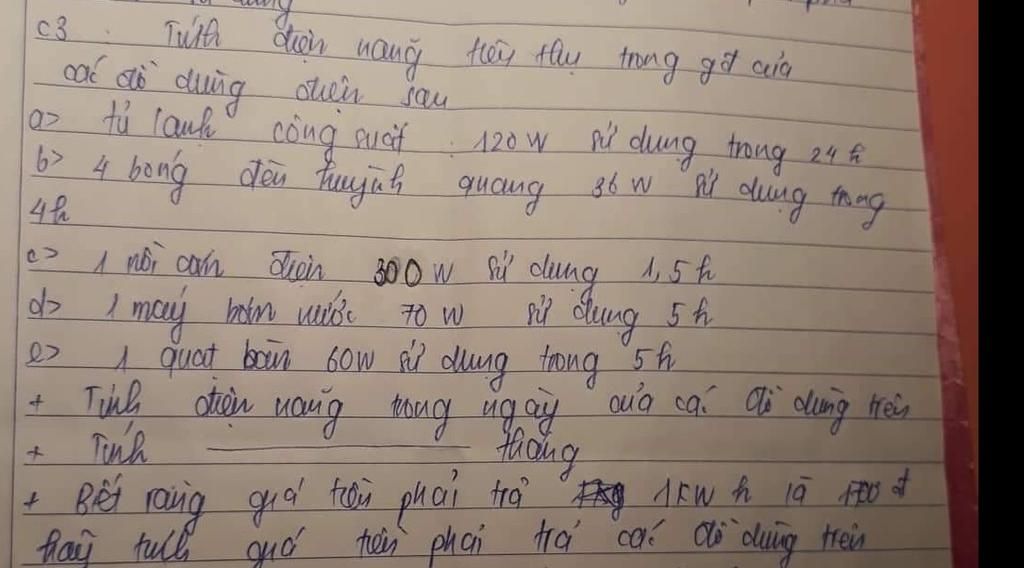 c3. Tính điện năng tiêu thụ trong gđ của
các đồ dùng điện sau
a> tủ lạnh công suất 120W sử dụng trong 24h
b> 4 bóng đèn huỳnh quang 36W sử dụng trong
4h
c> 1 nồi cơm điện 300W sử dụng 1,5h
d> 1 máy bơm nước 70W sử dụng 5h
e> 1 quạt bàn 60W sử dụng trong 5h
+ Tính điện năng trong ngày của các đồ dùng trên
+ Tính ———————— tháng
+ Biết rằng giá tiền phải trả 1KWh là 1700đ
hãy tính quá tiền phải trả các đồ dùng trên